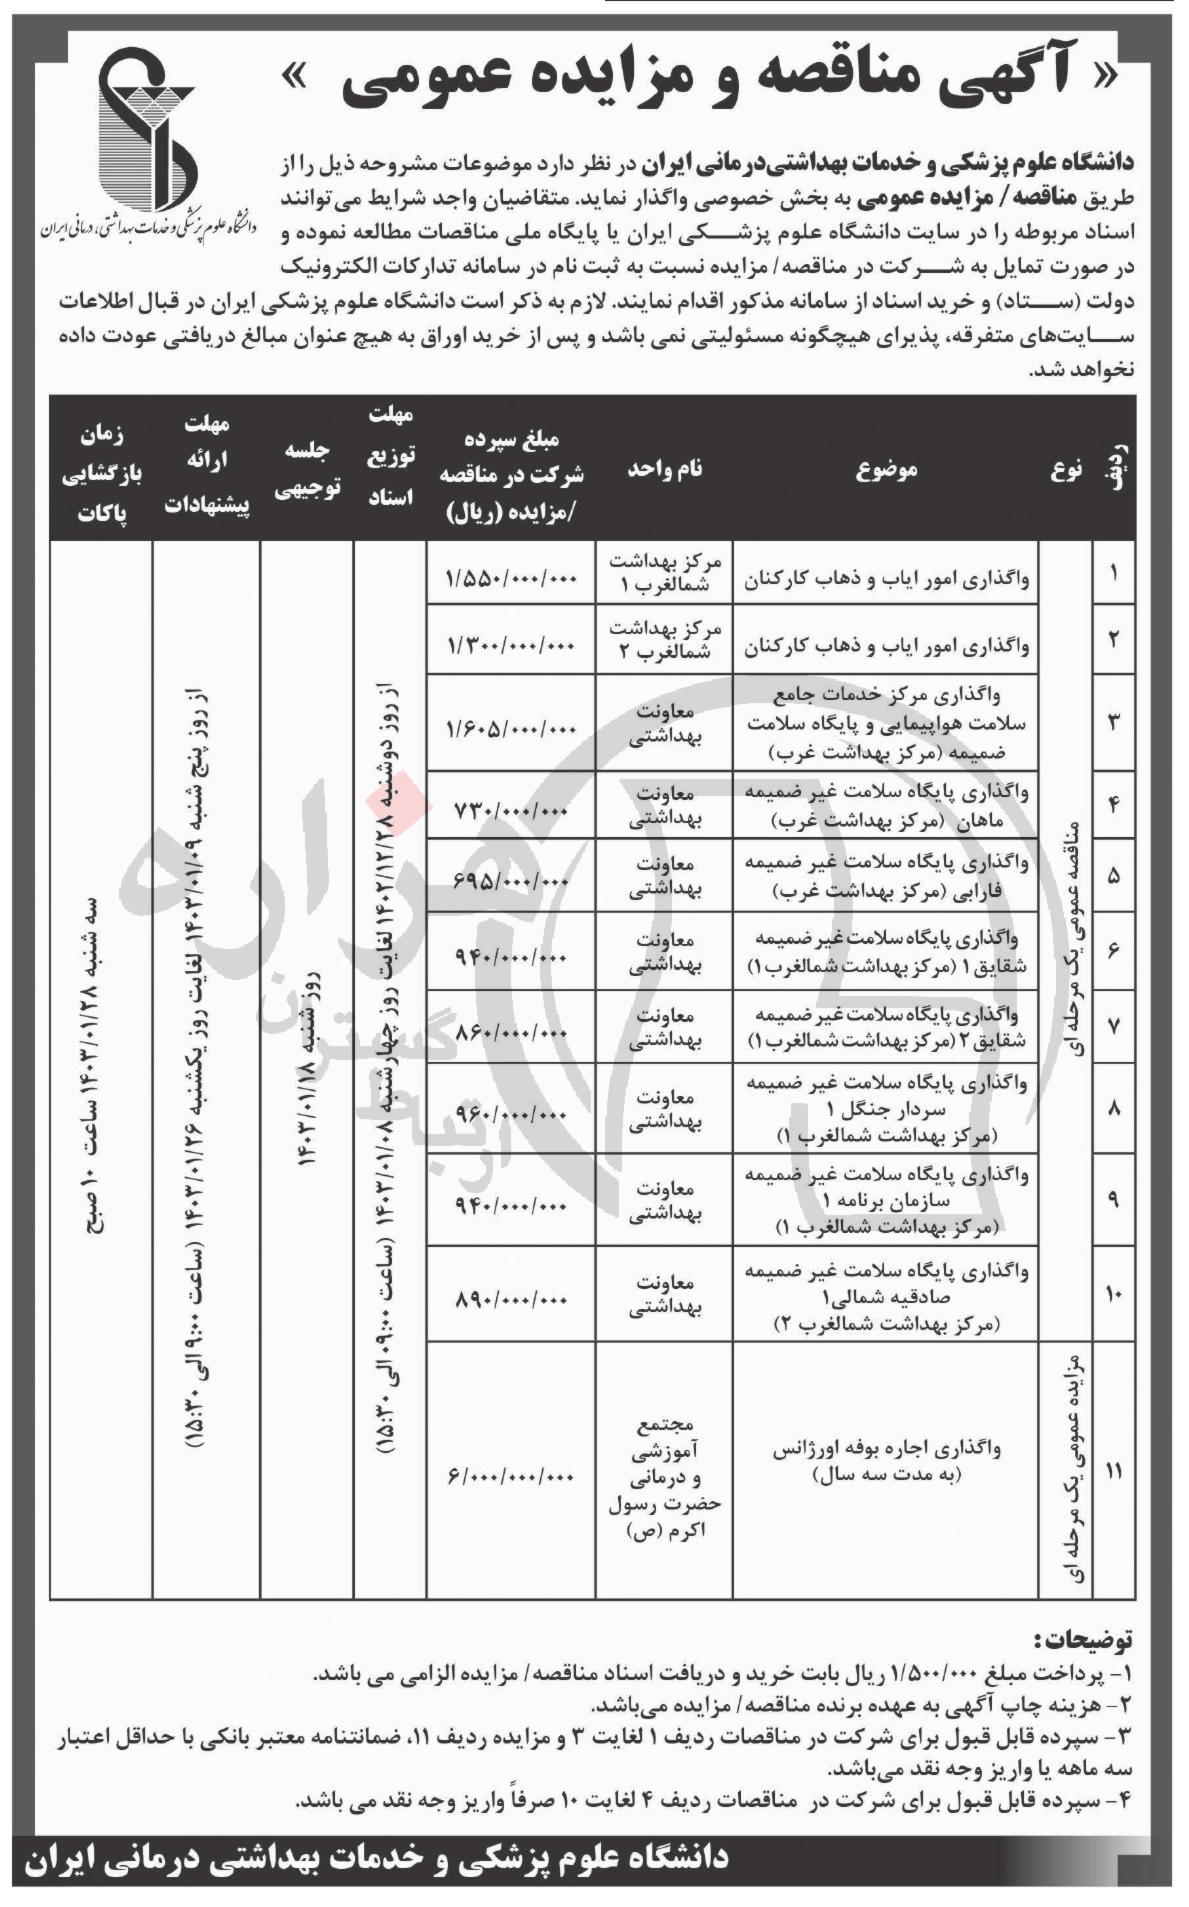 « آگهی مناقصه و مزایده عمومی »
دانشگاه علوم پزشکی و خدمات بهداشتی، درمانی ایران
دانشگاه علوم پزشکی و خدمات بهداشتی‌درمانی ایران در نظر دارد موضوعات مشروحه ذیل را از
طریق مناقصه/ مزایده عمومی به بخش خصوصی واگذار نماید. متقاضیان واجد شرایط می‌توانند
اسناد مربوطه را در سایت دانشگاه علوم پزشکی ایران یا پایگاه ملی مناقصات مطالعه نموده و
در صورت تمایل به شرکت در مناقصه/ مزایده نسبت به ثبت نام در سامانه تدارکات الکترونیک
دولت (ستاد) و خرید اسناد از سامانه مذکور اقدام نمایند. لازم به ذکر است دانشگاه علوم پزشکی ایران در قبال اطلاعات
سایت‌های متفرقه، پذیرای هیچگونه مسئولیتی نمی باشد و پس از خرید اوراق به هیچ عنوان مبالغ دریافتی عودت داده
نخواهد شد.
ردیف
نوع
موضوع
نام واحد
مبلغ سپرده
شرکت در مناقصه
/مزایده (ریال)
مهلت
توزیع
اسناد
جلسه
توجیهی
مهلت
ارائه
پیشنهادات
زمان
بازگشایی
پاکات
۱
واگذاری امور ایاب و ذهاب کارکنان
مرکز بهداشت
شمالغرب ۱
۱/۵۵۰/۰۰۰/۰۰۰
۲
واگذاری امور ایاب و ذهاب کارکنان
مرکز بهداشت
شمالغرب ۲
۱/۳۰۰/۰۰۰/۰۰۰
۳
واگذاری مرکز خدمات جامع
سلامت هواپیمایی و پایگاه سلامت
ضمیمه (مرکز بهداشت غرب)
معاونت
بهداشتی
۱/۶۰۵/۰۰۰/۰۰۰
۴
واگذاری پایگاه سلامت غیر ضمیمه
ماهان (مرکز بهداشت غرب)
معاونت
بهداشتی
۷۳۰/۰۰۰/۰۰۰
۵
واگذاری پایگاه سلامت غیر ضمیمه
فارابی (مرکز بهداشت غرب)
معاونت
بهداشتی
۶۹۵/۰۰۰/۰۰۰
۶
واگذاری پایگاه سلامت غیر ضمیمه
شقایق ۱ (مرکز بهداشت شمالغرب ۱)
معاونت
بهداشتی
۹۴۰/۰۰۰/۰۰۰
۷
واگذاری پایگاه سلامت غیر ضمیمه
شقایق ۲ (مرکز بهداشت شمالغرب ۱)
معاونت
بهداشتی
۸۶۰/۰۰۰/۰۰۰
۸
واگذاری پایگاه سلامت غیر ضمیمه
سردار جنگل ۱
(مرکز بهداشت شمالغرب ۱)
معاونت
بهداشتی
۹۶۰/۰۰۰/۰۰۰
۹
واگذاری پایگاه سلامت غیر ضمیمه
سازمان برنامه ۱
(مرکز بهداشت شمالغرب ۱)
معاونت
بهداشتی
۹۴۰/۰۰۰/۰۰۰
۱۰
واگذاری پایگاه سلامت غیر ضمیمه
صادقیه شمالی۱
(مرکز بهداشت شمالغرب ۲)
معاونت
بهداشتی
۸۹۰/۰۰۰/۰۰۰
۱۱
واگذاری اجاره بوفه اورژانس
(به مدت سه سال)
مجتمع
آموزشی
و درمانی
حضرت رسول
اکرم (ص)
۶/۰۰۰/۰۰۰/۰۰۰
مناقصه عمومی یک مرحله ای
مزایده عمومی یک مرحله ای
از روز دوشنبه ۱۴۰۲/۱۲/۲۸ لغایت روز چهارشنبه ۱۴۰۳/۰۱/۰۸ (ساعت ۰۹:۰۰ الی ۱۵:۳۰)
روز شنبه ۱۴۰۳/۰۱/۱۸
از روز پنج شنبه ۱۴۰۳/۰۱/۰۹ لغایت روز یکشنبه ۱۴۰۳/۰۱/۲۶ (ساعت ۹:۰۰ الی ۱۵:۳۰)
سه شنبه ۱۴۰۳/۰۱/۲۸ ساعت ۱۰ صبح
هزاره
ارتباط
گستران
توضیحات:
۱- پرداخت مبلغ ۱/۵۰۰/۰۰۰ ریال بابت خرید و دریافت اسناد مناقصه/ مزایده الزامی می باشد.
۲- هزینه چاپ آگهی به عهده برنده مناقصه/ مزایده می‌باشد.
۳- سپرده قابل قبول برای شرکت در مناقصات ردیف ۱ لغایت ۳ و مزایده ردیف ۱۱، ضمانتنامه معتبر بانکی با حداقل اعتبار
سه ماهه یا واریز وجه نقد می‌باشد.
۴- سپرده قابل قبول برای شرکت در مناقصات ردیف ۴ لغایت ۱۰ صرفاً واریز وجه نقد می باشد.
دانشگاه علوم پزشکی و خدمات بهداشتی درمانی ایران